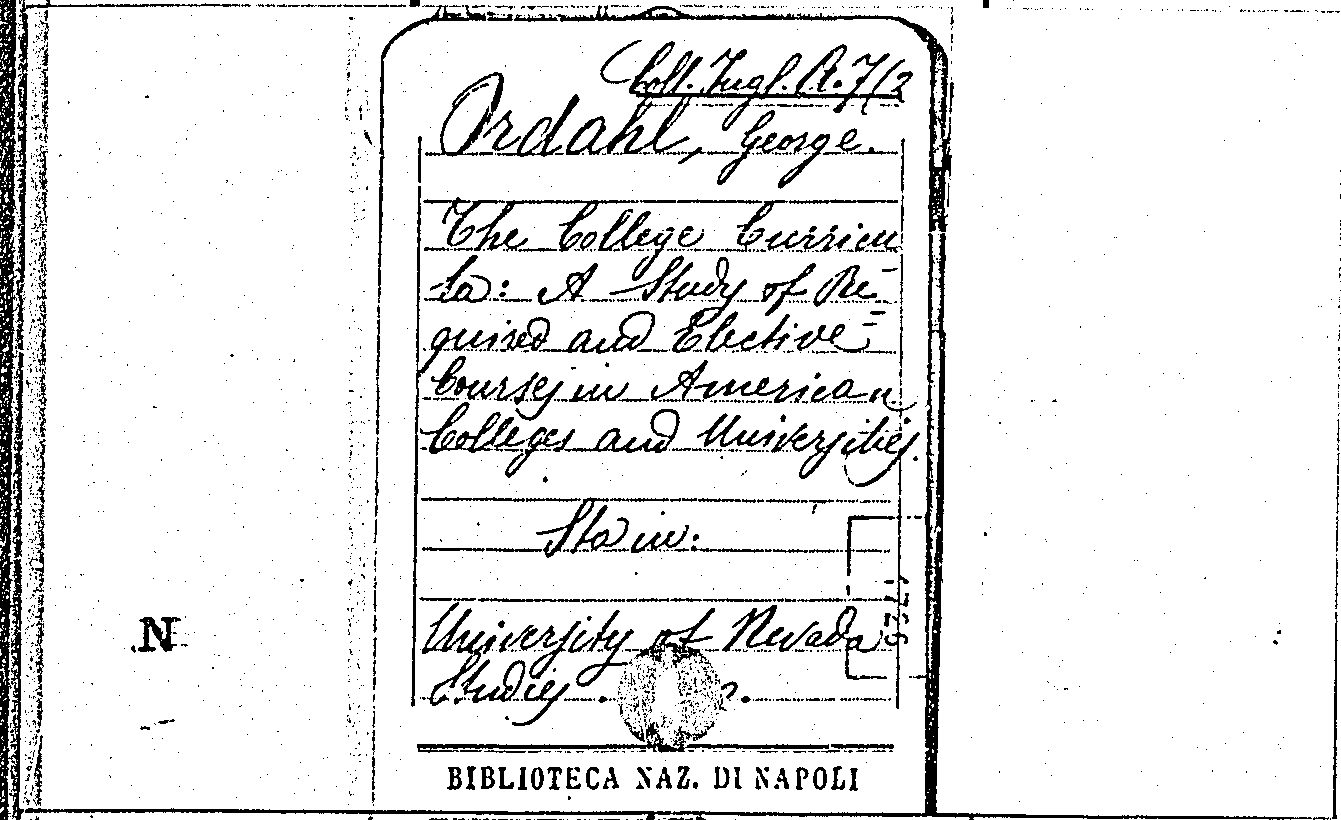 Coll. Ingl. A. 7/2
Ordahl, George.
The College Curricu
la: A Study of Re-
quired and Elective=
Courses in American
Colleges and Universities.
Sta in:
University of Nevada
Studies.
N
BIBLIOTECA NAZ. DI NAPOLI